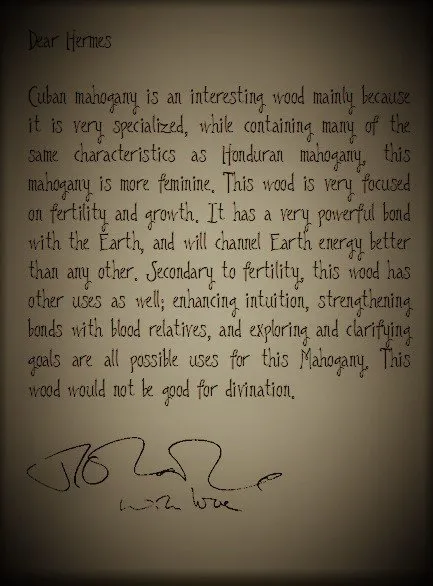 Dear Hermes
Cuban mahogany is an interesting wood mainly because
it is very specialized, while containing many of the
same characteristics as Honduran mahogany, this
mahogany is more feminine. This wood is very focused
on fertility and growth. It has a very powerful bond
with the Earth, and will channel Earth energy better
than any other. Secondary to fertility, this wood has
other uses as well; enhancing intuition, strengthening
bonds with blood relatives, and exploring and clarifying
goals are all possible uses for this Mahogany. This
wood would not be good for divination.
with love